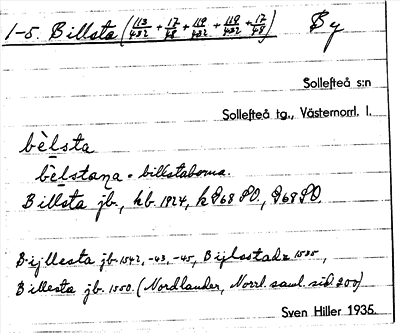 1-5. Billsta (113/432 + 17/48 + 119/432 + 119/432 + 17/48) By
Sollefteå s:n
Sollefteå tg., Västernorrl. l.
bèlsta
bèlstana = billstaborna.
Billsta jb., kb. 1924, k 268 SO., 268 SO.
Bijllesta jb. 1542, -43, -45, Bijlsstad 1535,
Billesta jb. 1550. (Nordlander, Norrl. saml. sid. 200)
Sven Hiller 1935.